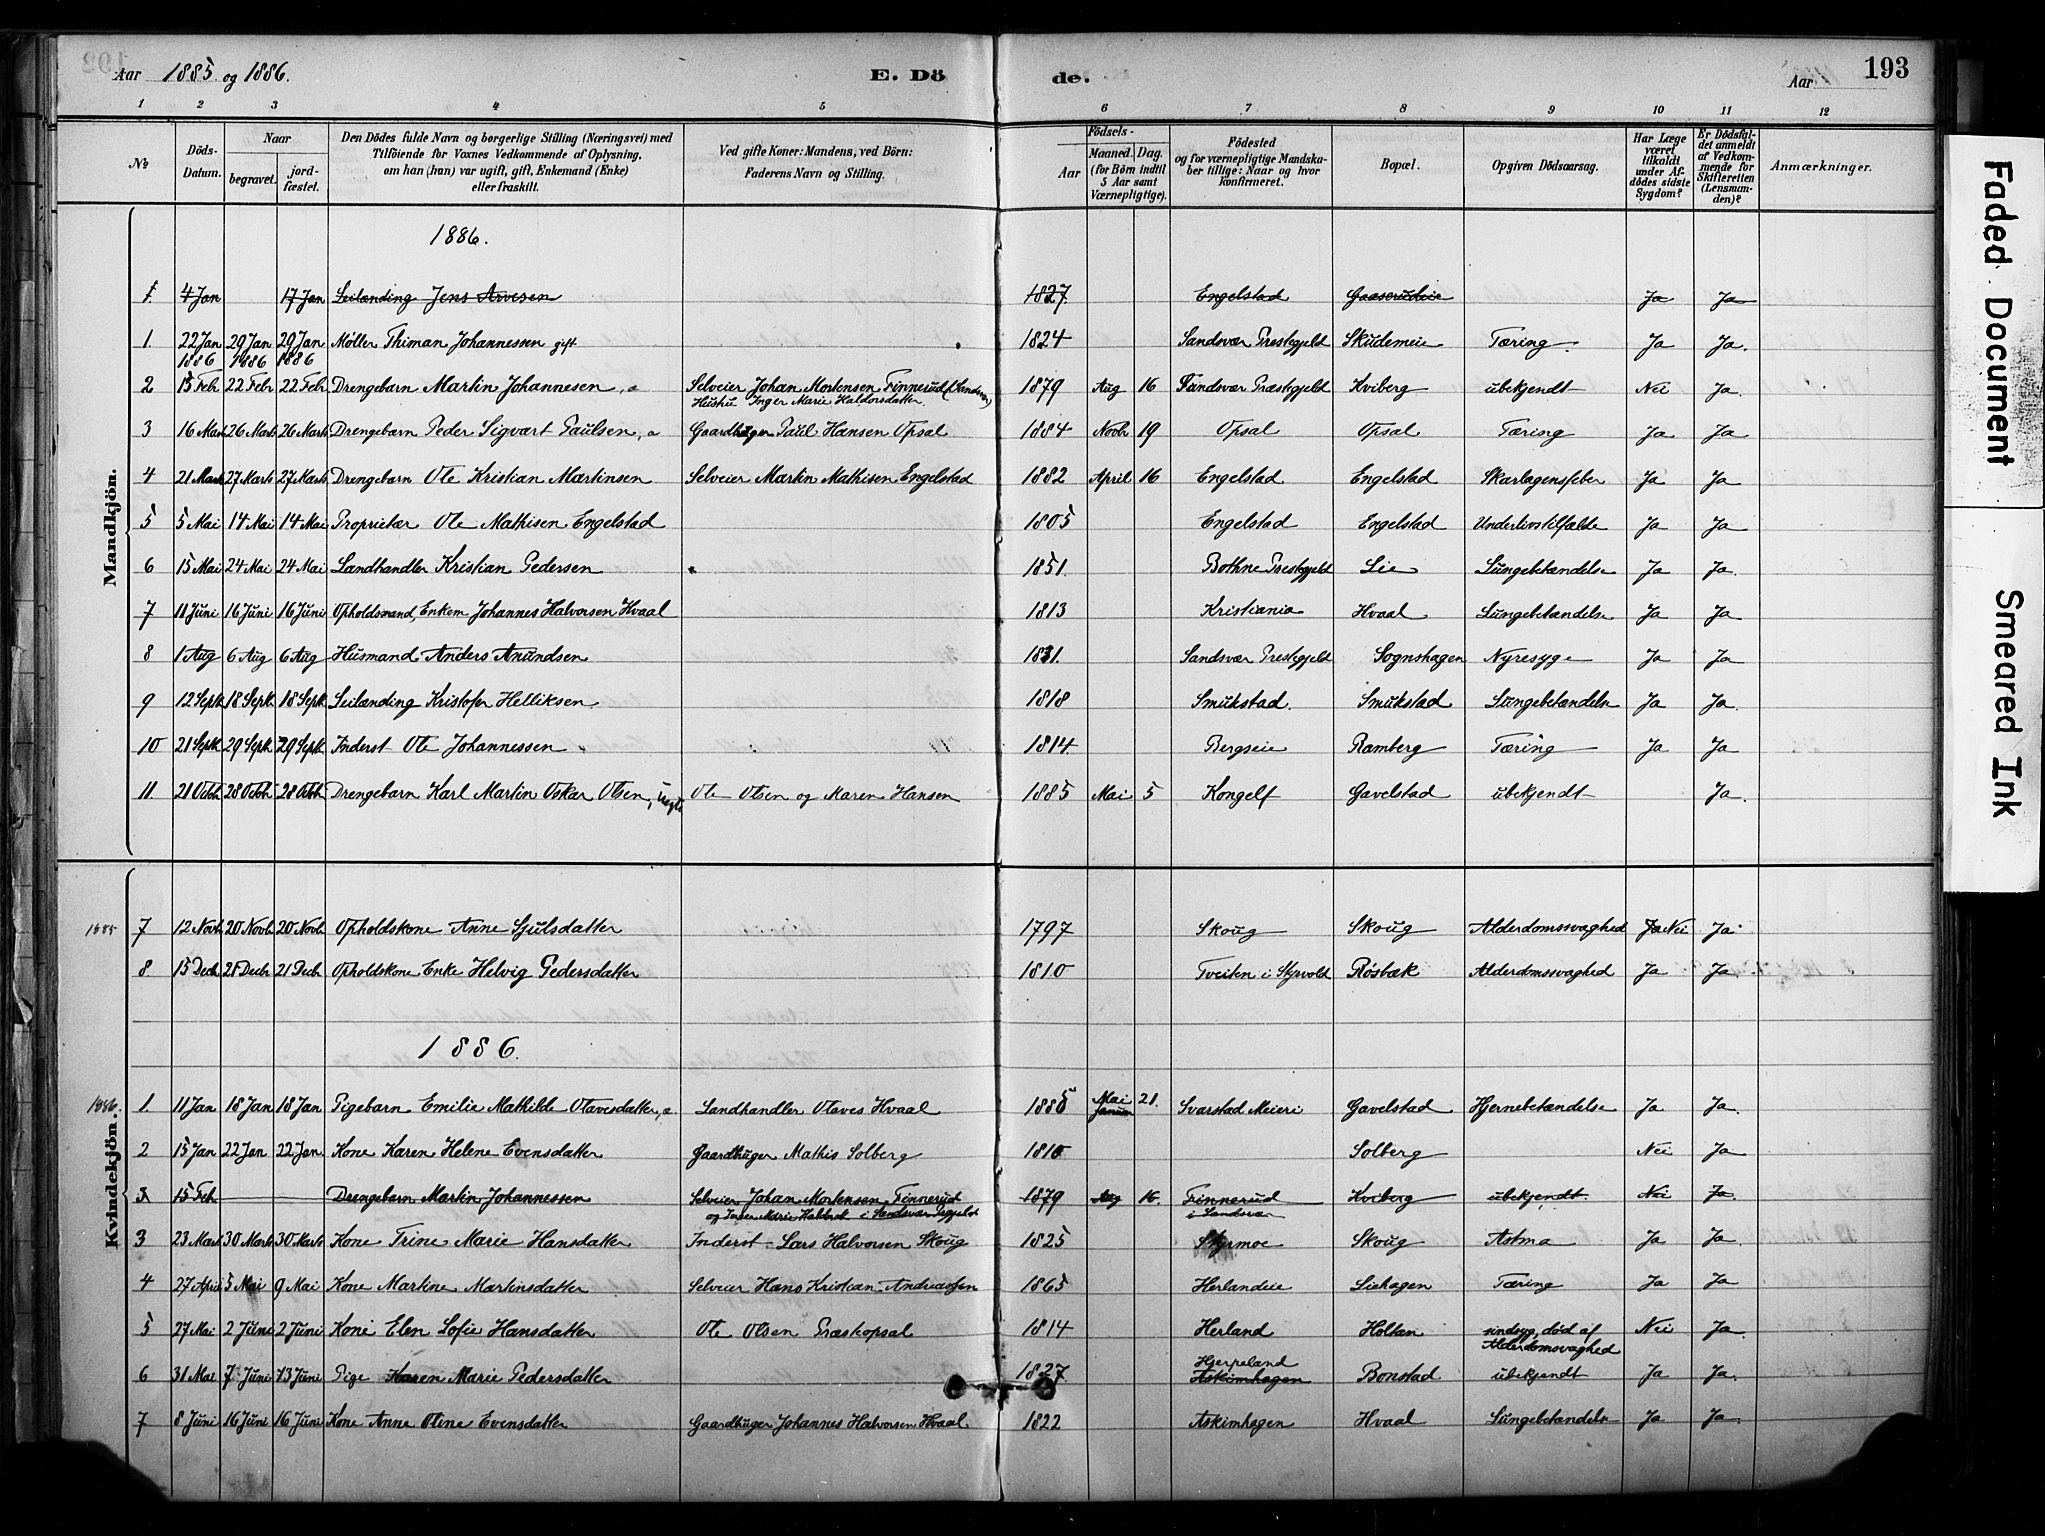 Aar 1885 og 1886. E. Dö de. Aar 193
1 2 3 4 5 6 7 8 9 10 11 12
№ Döds-Datum. Naar begravet. jordfæstet. Den Dödes fulde Navn og borgerlige Stilling (Næringsvei) med Tilföiende for Voxnes Vedkommende af Oplysning, om han (hun) var ugift, gift, Enkemand (Enke) eller fraskilt. Ved gifte Koner: Mandens, ved Börn: Faderens Navn og Stilling. Födsels- Aar Maaned. Dag. (for Börn indtil 5 Aar samt Værnepligtige). Födested og for værnepligtige Mandskaber tillige: Naar og hvor konfirmeret. Bopæl. Opgiven Dödsaarsag. Har Læge været tilkaldt under Afdödes sidste Sygdom? Er Dödsfaldet anmeldt af Vedkommende for Skifteretten (Lensmanden)? Anmærkninger.
Mandkjön.
1886.
1. 4 Jan 17 Jan Leilænding Jens Arvesen 1827 Engelstad Gaaserudeie Ja Ja
1. 22 Jan 1886 29 Jan 1886 29 Jan 1886 Møller Thiman Johannessen gift 1824 Sandsvær Prestegjeld Skudemeie Tæring. Ja Ja.
2 15 Febr 22 Febr 22 Febr Drengebarn Martin Johannesen, Selveier Johan Mortensen Finnerud Hustru Inger Marie Haldorsdatter. 1879 Aug 16 Sandsvær Præstegjeld Kviberg ubekjendt Nei Ja.
3 16 Marts 26 Marts 26 Marts Drengebarn Peder Sigvart Paulsen, Gaardbruger Paul Hansen Opsal 1884 Novbr 19 Opsal Opsal Tæring Ja Ja
4 21 Marts 27 Marts 27 Marts Drengebarn Ole Kristian Martinsen Selveier Martin Mathisen Engelstad 1882 April 16 Engelstad Engelstad Skarlagensfeber Ja Ja
5 5 Mai 14 Mai 14 Mai Proprietær Ole Mathisen Engelstad 1805 Engelstad Engelstad Underlivstilfælde Ja Ja
6 15 Mai 24 Mai 24 Mai Landhandler Kristian Pedersen 1851. Bothne Prestegjeld Lie Lungebetændelse Ja Ja.
7 11 Juni 16 Juni 16 Juni Opholdsmand, Enkem Johannes Halvorsen Hvaal 1813 Kristiania Hvaal Lungebetændelse Ja Ja
8 1 Aug 6 Aug 6 Aug Husmand Anders Anundsen 1831. Sandsvær Prestegjeld Sognshagen Nyresyge Ja Ja
9 12 Septb 18 Septb 18 Septb Leilænding Kristofer Helliksen 1818 Smukstad. Smukstad Lungebetændelse Ja Ja.
10 21 Septb 29 Septb 29 Septb Inderst Ole Johannessen 1814. Bergseie Ramberg Tæring Ja Ja
11 21 Octob 28 Octob 28 Octob Drengebarn Karl Martin Oskar Olsen, uegte Ole Olsen og Maren Hansen 1885 Mai 5 Kongelf Gavelstad ubekjendt Ja.
Kvindekjön.
1885 7 12 Novb 20 Novb 20 Novb Opholdskone Anne Sjulsdatter 1797 Skoug Skoug Alderdomssvaghed Ja Nei Ja
8 15 Decb 21 Decb 21 Decb Opholdskone Enke Helvig Pedersdatter 1810 Tveiten i Styrvold Røsbæk Alderdomssvaghed Ja Ja
1886.
1886. 1. 11 Jan 18 Jan 18 Jan Pigebarn Emilie Mathilde Olavesdatter, Landhandler Olaves Hvaal 1885 Mai Januar 21. Svarstad Meieri Gavelstad Hjernebetændelse Ja Ja.
2 15 Jan 22 Jan 22 Jan Kone Karen Helene Evensdatter Gaardbruger Mathis Solberg 1810 Solberg Nei Ja
3 15 Feb. Drengebarn Martin Johannessen Selveier Johan Mortensen Finnerud og Inger Marie Haldorsd i Sandsvær Pregjeld 1879 Aug 16. Finnerud i Sandsvær Kviberg ubekjendt. Nei Ja
3 23 Marts 30 Marts 30 Marts Kone Trine Marie Hansdatter Inderst Lars Halvorsen Skoug 1825 Styrmoe Skoug Astma Ja Ja.
4 27 April 5 Mai 9 Mai Kone Martine Martinsdatter Selveier Hans Kristian Andreassen 1865 Herlandeie Liehagen Tæring Ja Ja
5 27 Mai 2 Juni 2 Juni Kone Elen Sofie Hansdatter Ole Olsen Præskopsal 1814 Herland Holtan sindsyg, død af Alderdomsvaghed Nei Ja
6 31 Mai 7 Juni 13 Juni Pige Karen Marie Pedersdatter 1827. Hjerpeland Askimhagen Bonstad ubekjendt Ja Ja.
7 8 Juni 16 Juni 16 Juni Kone Anne Oline Evensdatter Gaardbruger Johannes Halvorsen Hvaal 1822 Askimhagen Hvaal Lungebetændelse Ja Ja
Faded Document
Smeared Ink